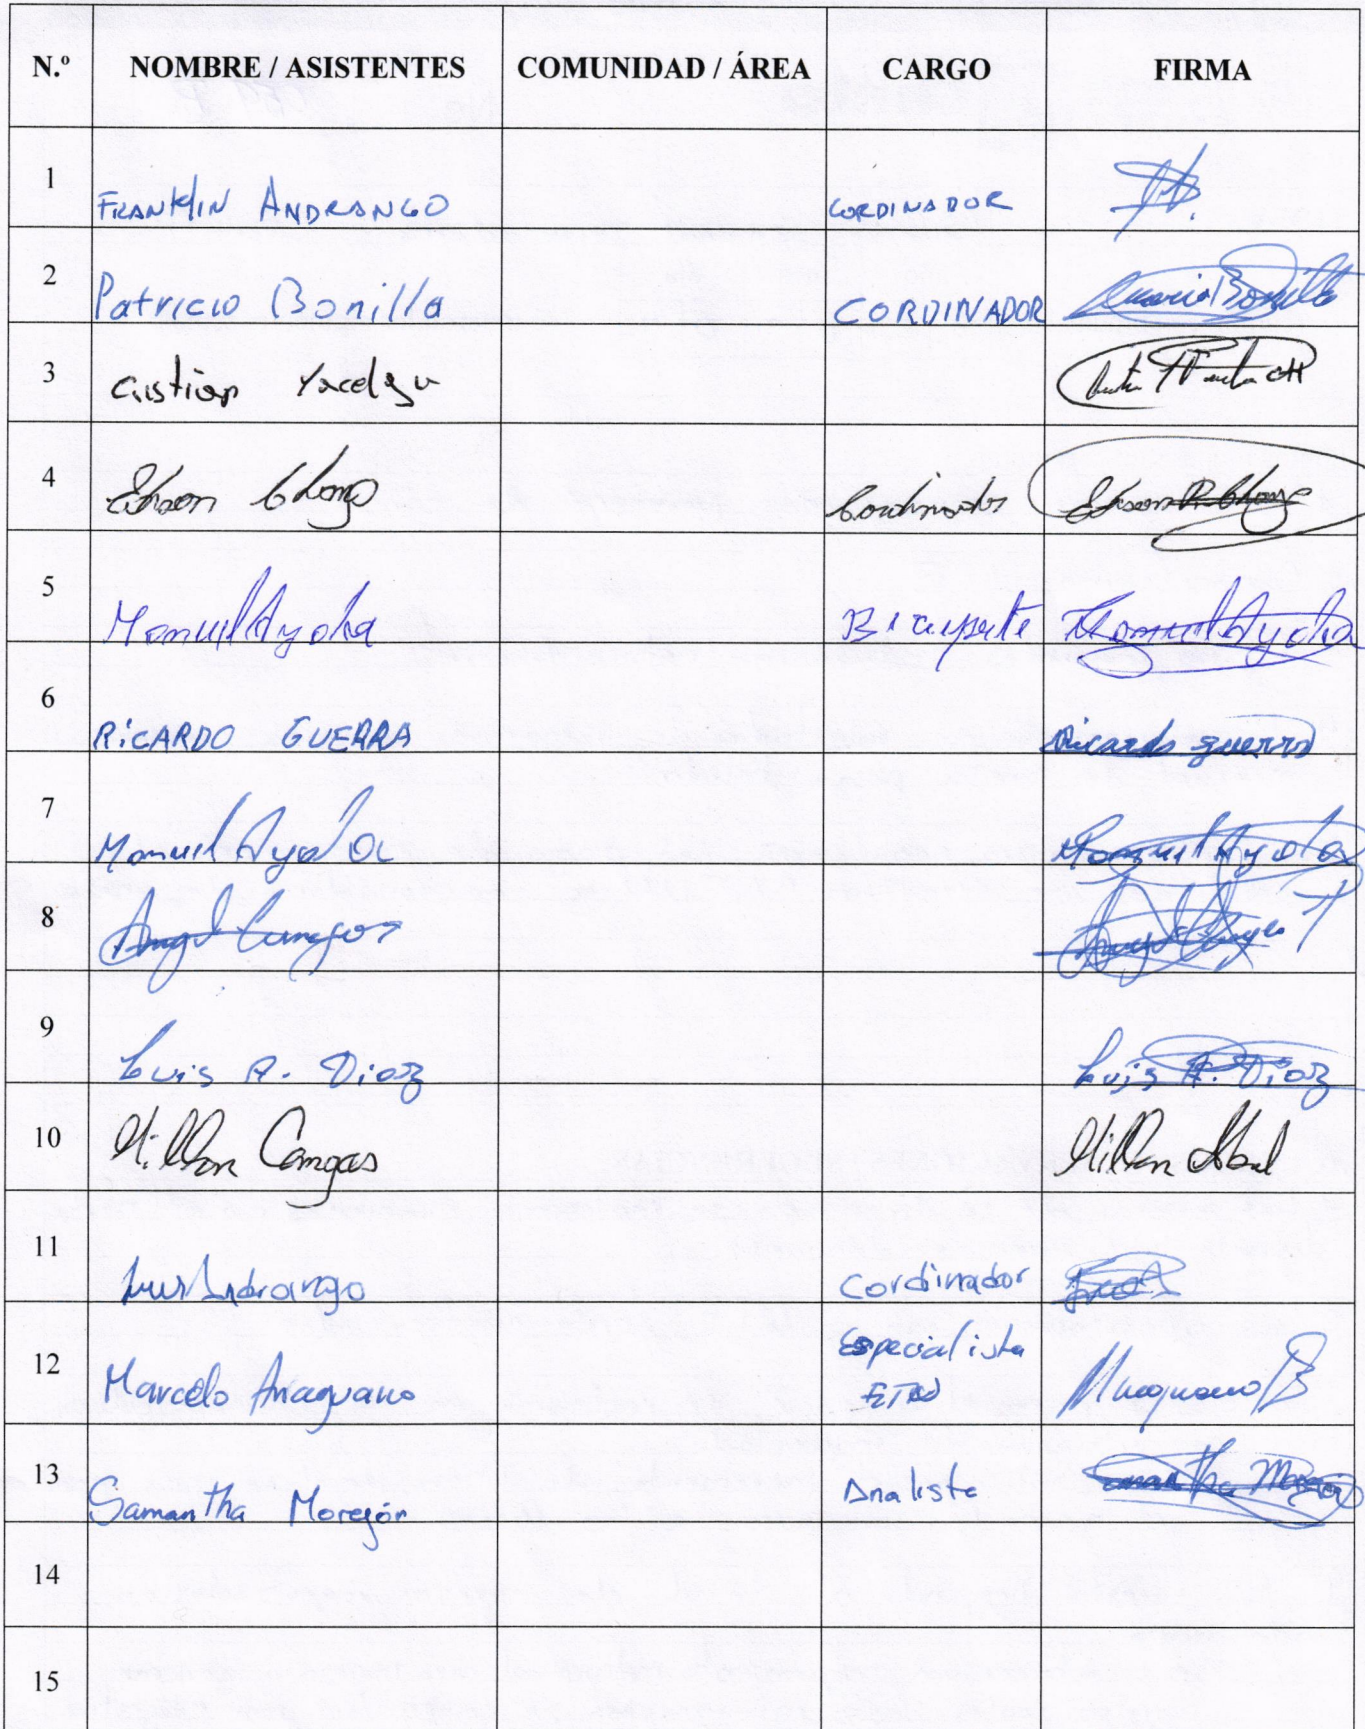 N.º NOMBRE / ASISTENTES COMUNIDAD / ÁREA CARGO FIRMA
1 FRANKLIN ANDRANGO CORDINADOR
2 Patricio Bonilla CORDINADOR Bonilla
3 Cristian Yacelga
4 Edison Chango Cordinador Edison R. Chango
5 Manuel Ayala Manuel Ayala
6 RiCARDO GUERRA Ricardo guerra
7 Manuel Ayala Manuel Ayala
8 Angel Angel
9 Luis A. Diaz Luis A. Diaz
10 Cangas
11 Luis Andrango Cordinador
12 Marcelo Anaguano Especialista
13 Samantha Morejón Analista Samantha Morejón
14
15